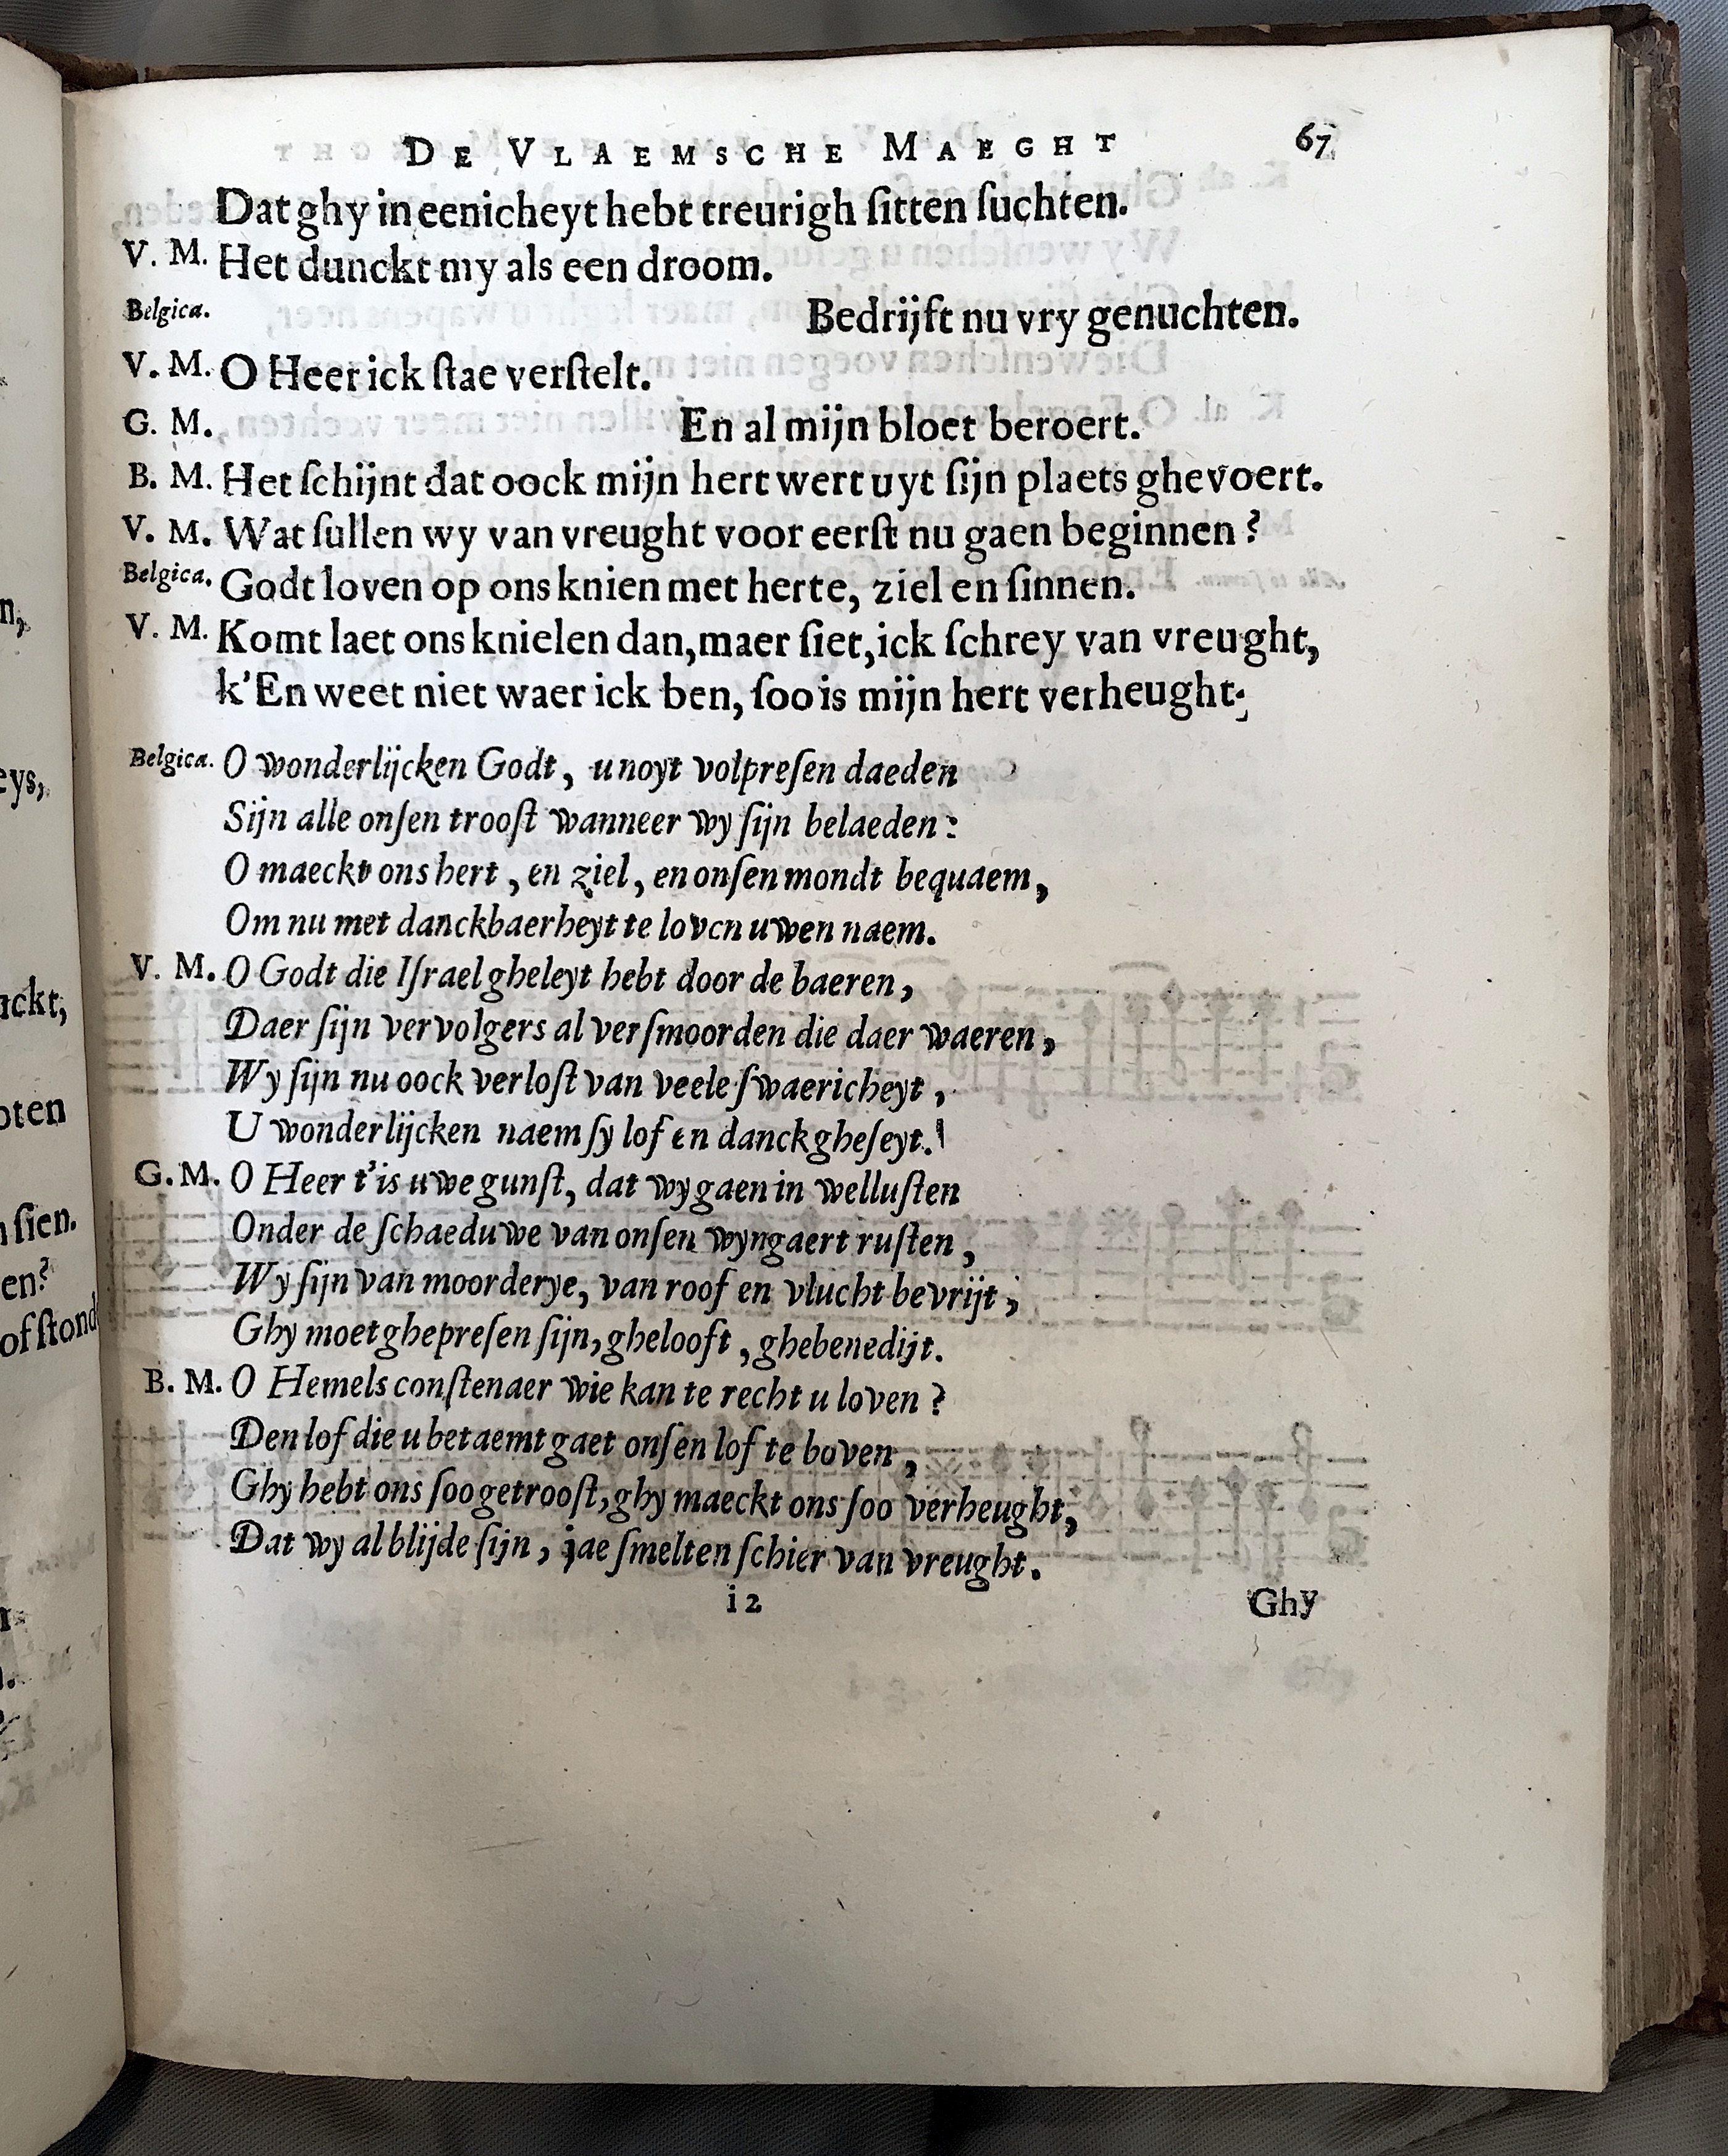 De Vlaemsche Maeght 67
Dat ghy in eenicheyt hebt treurigh ſitten ſuchten.
V. M. Het dunckt my als een droom.
Belgica. Bedrijft nu vry genuchten.
V. M. O Heer ick ſtae verſtelt.
G. M. En al mijn bloet beroert.
B. M. Het ſchijnt dat oock mijn hert wert uyt ſijn plaets ghevoert.
V. M. Wat ſullen wy van vreught voor eerſt nu gaen beginnen?
Belgica. Godt loven op ons knien met herte, ziel en ſinnen.
V. M. Komt laet ons knielen dan, maer ſiet, ick ſchrey van vreught,
k'En weet niet waer ick ben, ſoo is mijn hert verheught.
Belgica. O wonderlijcken Godt, u noyt volpreſen daeden
Sijn alle onſen trooſt wanneer wy ſijn belaeden:
O maeckt ons hert, en ziel, en onſen mondt bequaem,
Om nu met danckbaerheyt te loven uwen naem.
V. M. O Godt die Iſrael gheleyt hebt door de baeren,
Daer ſijn vervolgers al verſmoorden die daer waeren,
Wy ſijn nu oock verloſt van veele ſwaericheyt,
U wonderlijcken naem ſy lof en danck gheſeyt.
G. M. O Heer t'is uwe gunſt, dat wy gaen in welluſten
Onder de ſchaeduwe van onſen wyngaert ruſten,
Wy ſijn van moorderye, van roof en vlucht bevrijt;
Ghy moet ghepreſen ſijn, ghelooft, ghebenedijt.
B. M. O Hemels conſtenaer wie kan te recht u loven?
Den lof die u betaemt gaet onſen lof te boven,
Ghy hebt ons ſoo getrooſt, ghy maeckt ons ſoo verheught,
Dat wy al blijde ſijn, jae ſmelten ſchier van vreught.
i 2 Ghy